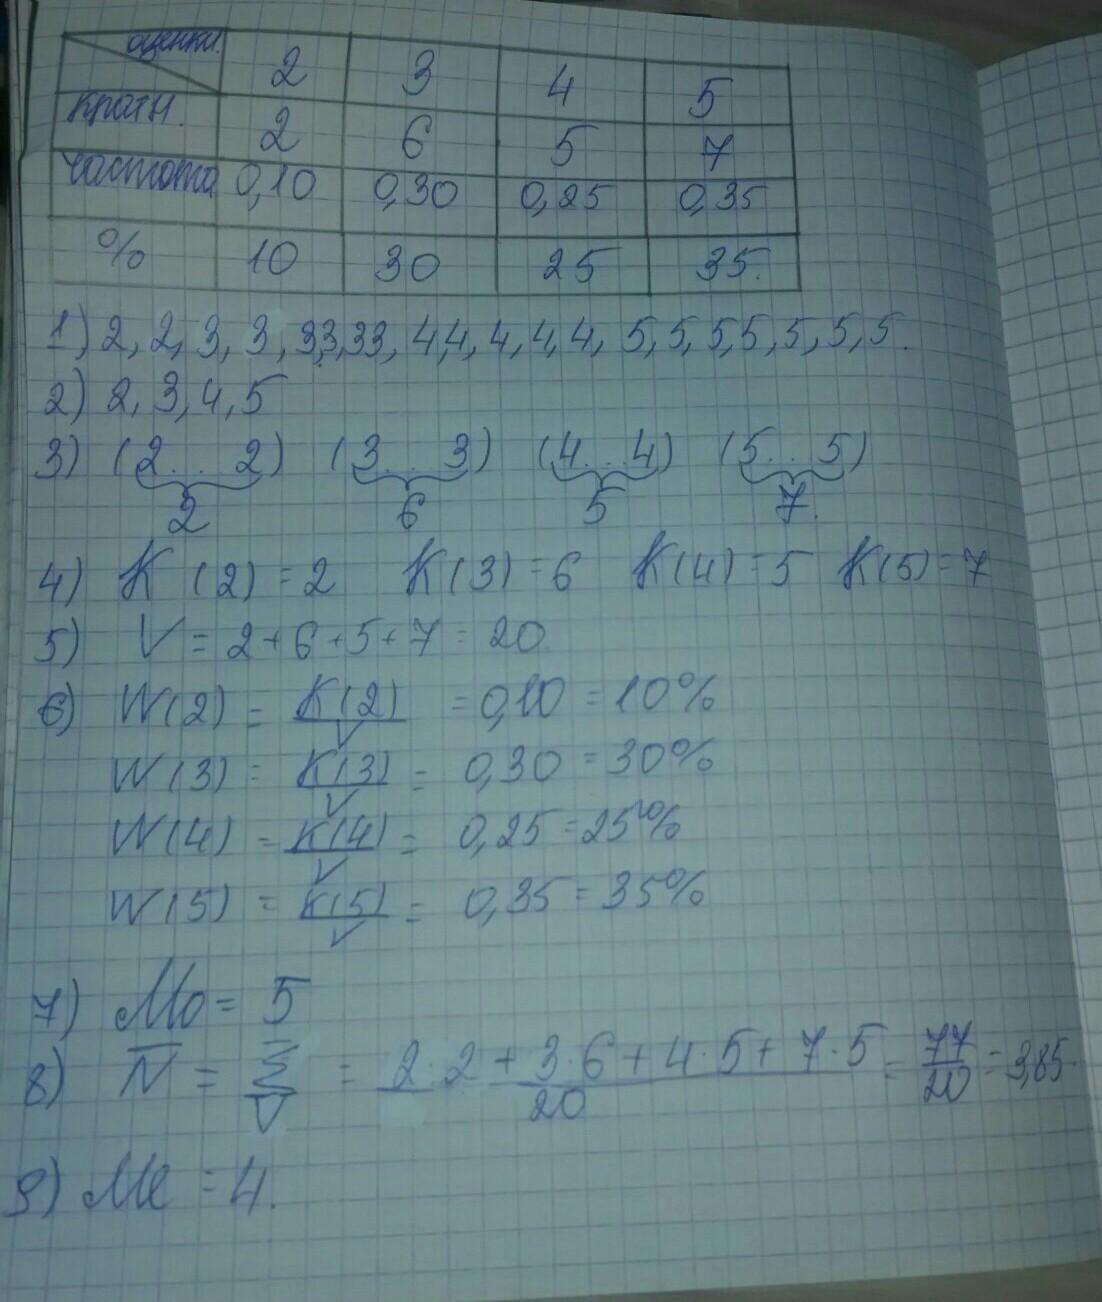 оценки 2 3 4 5
кратн. 2 6 5 7
частота 0,10 0,30 0,25 0,35
% 10 30 25 35.
1) 2, 2, 3, 3, 3,3,3,3, 4,4, 4, 4, 4, 5, 5, 5,5, 5, 5, 5.
2) 2, 3, 4, 5
3) (2...2) (3...3) (4...4) (5...5)
2 6 5 7.
4) K (2) = 2 K(3) = 6 K(4) = 5 K(5) = 7
5) V = 2 + 6 + 5 + 7 = 20.
6) W(2) = K(2)/V = 0,10 = 10%
W(3) = K(3)/V = 0,30 = 30%
W(4) = K(4)/V = 0,25 = 25%
W(5) = K(5)/V = 0,35 = 35%
7) Mo = 5
8) N̅ = Σ/V = 2·2 + 3·6 + 4·5 + 7·5/20 = 77/20 = 3,85.
9) Me = 4.